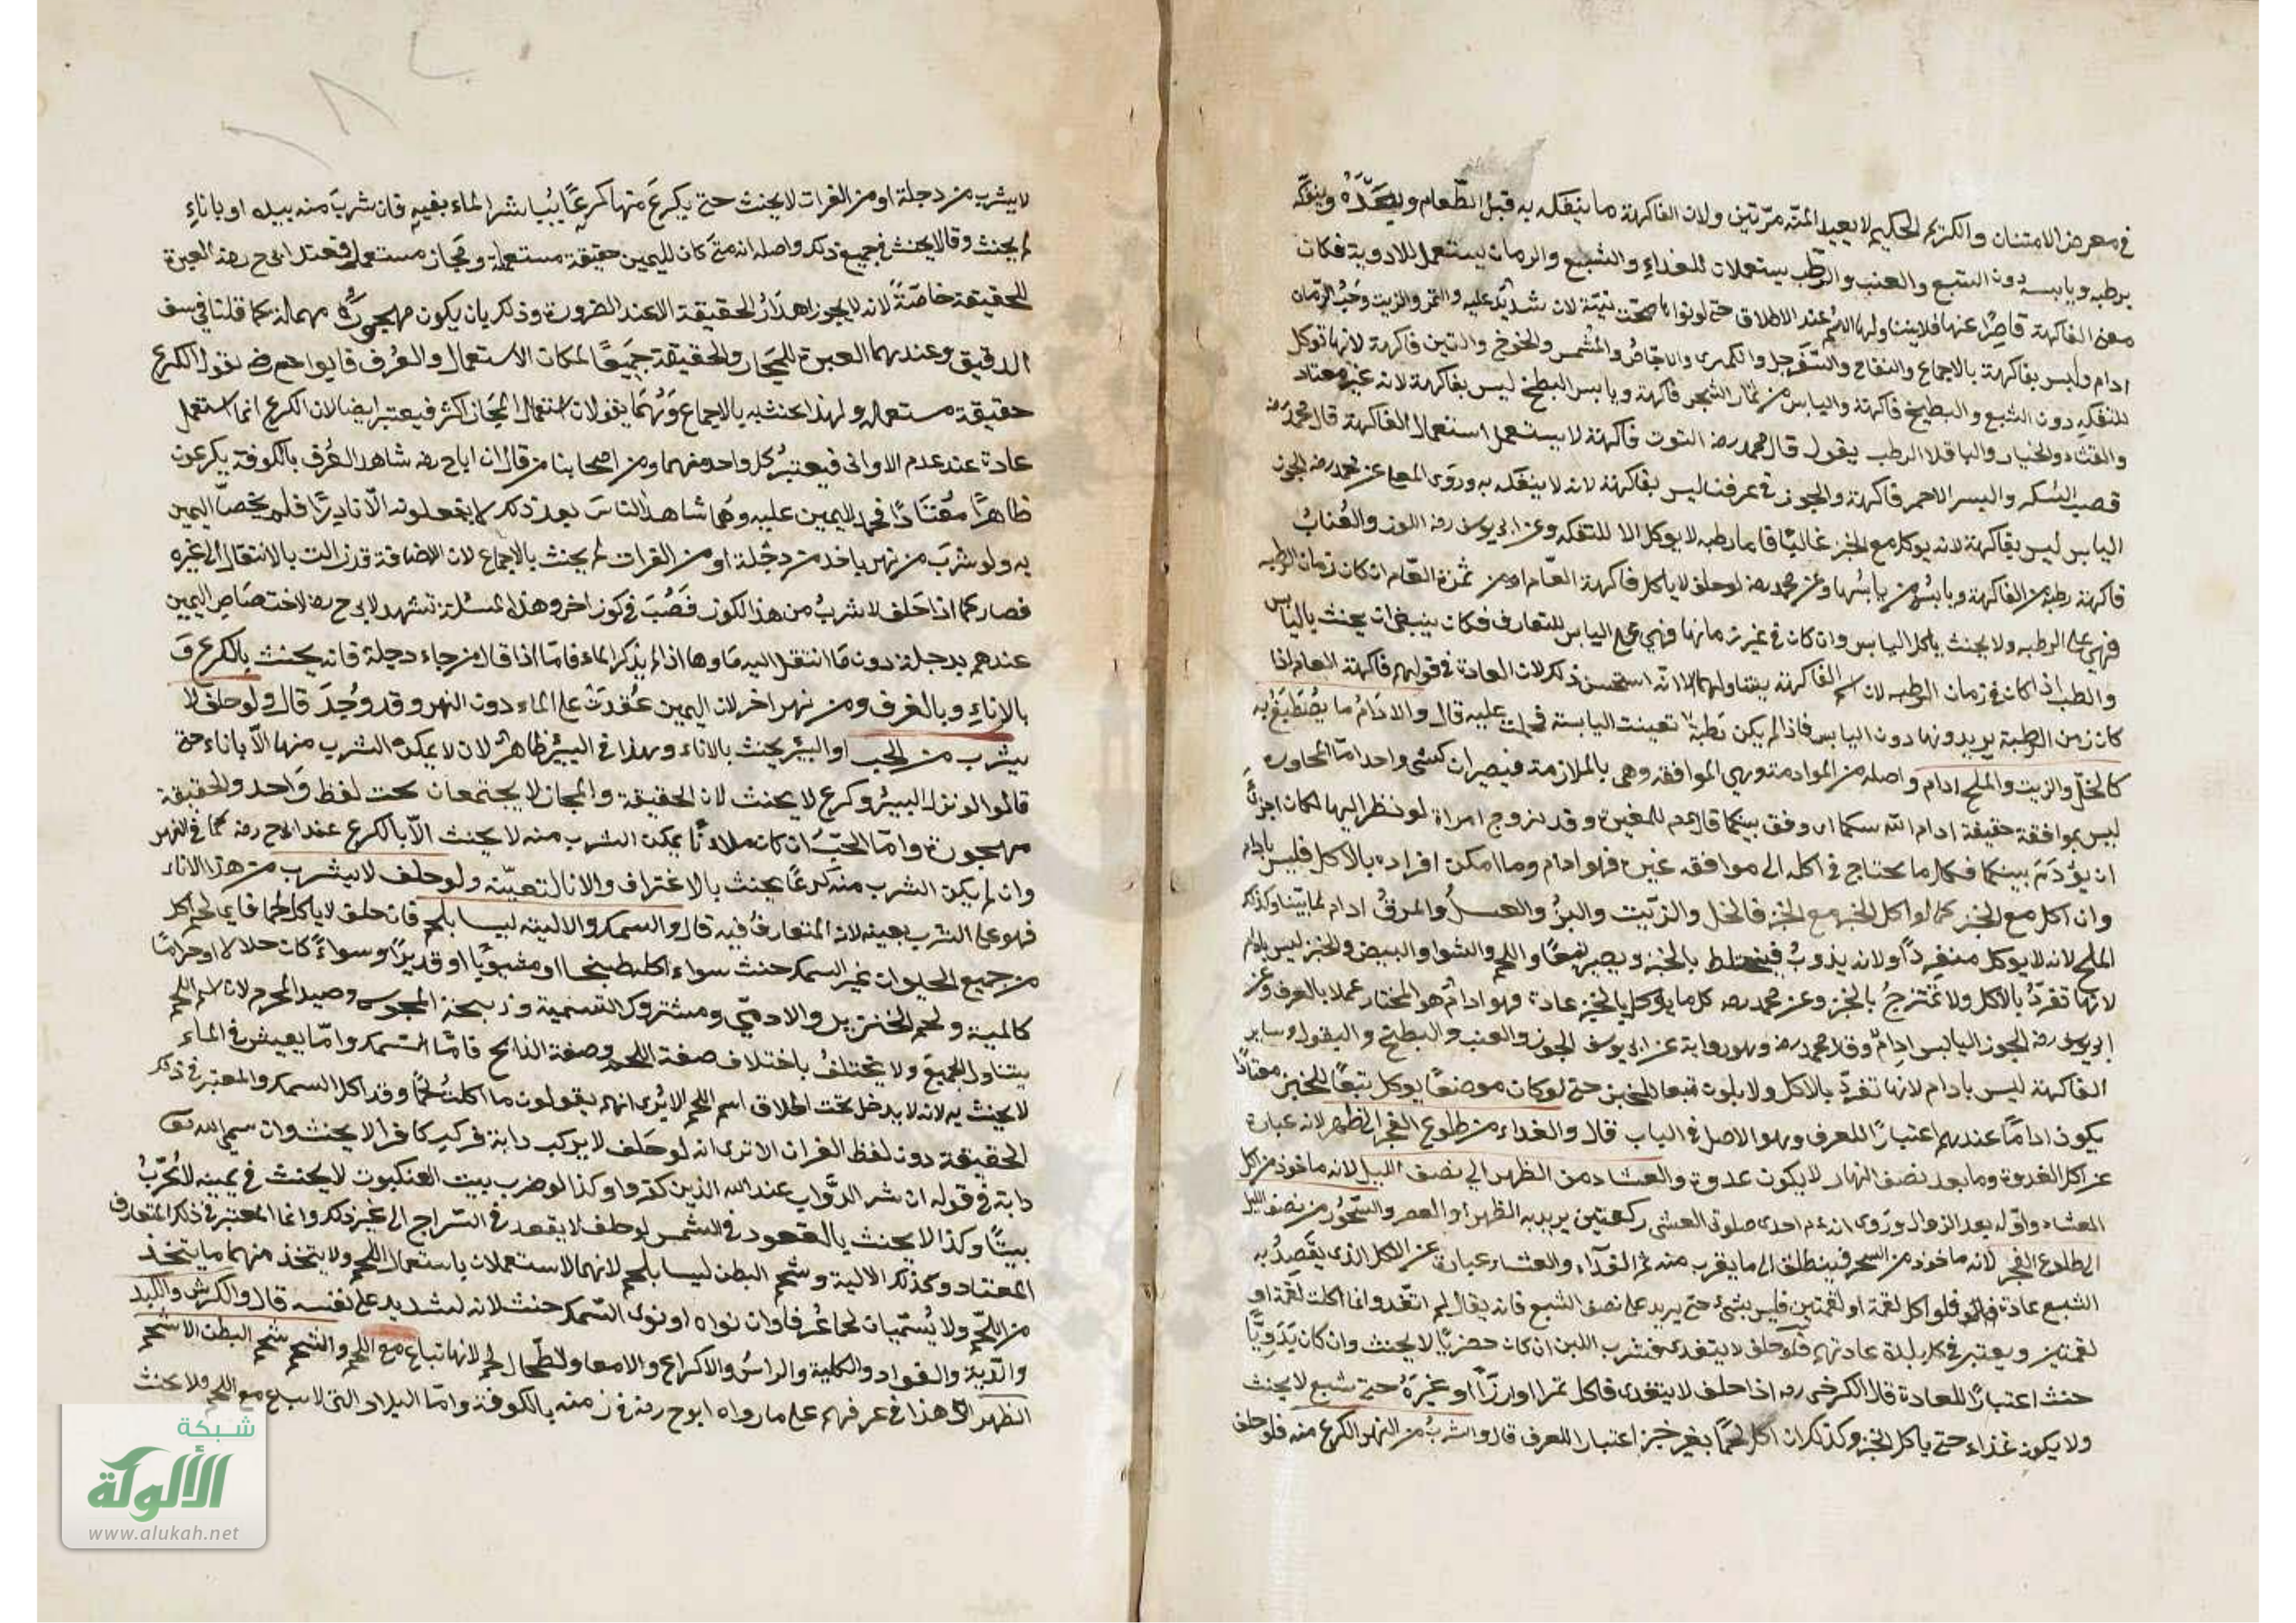 في معرض الامتنان والكريم الحكيم لا يعيد المنّة مرّتين ولان الفاكهة ما يتفكه به قبل الطّعام وبعده ويتفكه
برطبه ويابسه دون الشبع والعنب والرّطب يستعملان للغداء والشبع والرمان يستعمل للادوية فكان
معنى الفاكهة قاصرًا عنها فلا يتناولها اسم عند الاطلاق حتى لو نواها صحت نيّته لان شدّد عليه والتمر والزبيب وحبّ الرّمان
ادام وليس بفاكهة بالاجماع والتفاح والسّفرجل والكمثرى والاجّاص والمُشمس والخوخ والتين فاكهة لانها توكل
للتفكه دون الشبع والبطيخ فاكهة واليابس من ثمار الشجر فاكهة ويابس البطيخ ليس بفاكهة لانه غير معتاد
والقثاء والخيار والباقلا الرطب بقول قال محمد رضه التوت فاكهة لا يستعمل استعمال الفاكهة قال محمد رضه
قصب السكر والبسر الاحمر فاكهة والجوز في عرفنا ليس بفاكهة لانه لا يتفكه به وروى المعلى عن محمد رضه الجوز
اليابس ليس بفاكهة لانه يوكل مع الخبز غالبًا فاما رطبه لا يوكل الا للتفكه وعن ابي يوسف رضه اللوز والعُنّاب
فاكهة رطبه من الفاكهة ويابسُه من يابسُها وعن محمد رضه لو حلف لا ياكل فاكهة العام او من ثمرة العام ان كان زمان الرطبه
فهي على الرطبه ولا يحنث باكل اليابس وان كان في غير زمانها فهي على اليابس للتعارف فكان ينبغي ان يحنث باليابس
والطب اذا كان في زمان الرطبه لان اسم الفاكهة يتناولهما الا انّه استحسن ذلك لان العادة في قولهم فاكهة العام اذا
كان زمن الرطبة يريدونها دون اليابس فاذا لم يكن رطبة تعينت اليابسة فحملت عليه قال والادَامُ ما يُصْطَبَغُ به
كالخلّ والزيت والملح ادام واصله من الموادمة وهي الموافقة وهي بالملازمة فيصيران كشيء واحد امّا المجاوره
ليس بموافقة حقيقة ادام اللّه بينكما اي وفق بينكما قال عم للمغيرة وقد تزوج امراة لو نظر اليها لكان احرى
ان يؤدَم بينكما فكل ما يحتاج في اكله الى موافقه غيره فهو ادام وما امكن افراده بالاكل فليس بادام
وان اكل مع الخبز كما لو اكل الخبز مع الخبز فالخل والزيت واللبن والعسل والمرق ادام لما بيّنا وكذلك
الملح لانه لا يوكل منفردًا ولانه يذوبُ فيختلط بالخبز ويصير تبعًا واللحم والشوا والبيض والجبن ليس بادام
لانها تفرّدُ بالاكل ولا تمتزجُ بالخبز وعن محمد رضه كل ما يؤكل بالخبز عادة فهو ادامٌ هو المختار عملا بالعرف وعن
ابي يوسف رضه الجوز اليابس ادامٌ وقال محمد رضه وهو رواية عن ابي يوسف الجوز والعنب والبطيخ والبقول وساير
الفاكهة ليس بادام لانها تفردّ بالاكل ولا يكون تبعا للخبز حتى لو كان موضعًا يوكل تبعًا للخبز معتادًا
يكون ادامًا عندهم اعتبارًا للعرف وهو الاصل في الباب قال والغداء من طلوع الفجر الى الظهر لانه عبارة
عن اكل الغدوة وما بعد نصف النهار لا يكون غدوة والعشاء من الظهر الى نصف الليل لانه ماخوذ من اكل
العشاء واوّله بعد الزوال وروى انه عم احدى صلوتي العشي ركعتين يريد به الظهر او العصر والسّحُور من نصف الليل
الى طلوع الفجر لانه ماخوذ من السحر فينطلق الى ما يقرب منه ثم الغداء والعشاء عبارة عن الاكل الذي يقصدُ به
الشبع عادة فلو اكل لقمة او لقمتين فليس بشئ حتى يزيد على نصف الشبع فانه يقال لم اتغّد وانما اكلت لقمة او
لقمتين ويعتبر في كل بلدة عادتهم فلو حلف لا يتغدى فشرب اللبن ان كان حضريًّا لا يحنث وان كان بَدَوِيًّا
حنث اعتبارًا للعادة قال الكرخي رضه اذا حلف لا يتغدى فاكل تمرا او ارزًّا او غيرَهُ حتى شبع لا يحنث
ولا يكون غداء حتى ياكل الخبز وكذلك ان اكل لحمًا بغير خبز اعتبارا للعرف قال والشربُ من النهر الكرع منه فلو حلف
لا يشرب من دجلة او من الفرات لا يحنث حتى يكرعَ منها كرعًا يُباشر الماء بفيه فان شربَ منه بيده او باناءِ
لم يحنث وقالا يحنث في جميع ذلك واصله انه متى كان لليمين حقيقة مستعملة ومجاز مستعمل فعند ابي ح رضه العبرة
للحقيقة خاصّةً لانه لا يجوز اهدارُ الحقيقة الا عند الضرورة وذلك بان يكون مهجورةً مهملة كما قلنا في سف
الدقيق وعندهما العبرة للمجاز والحقيقة جميعًا لمكان الاستعمال والعُرف فابو ح رضه يقول الكرع
حقيقة مستعملة ولهذا يحنث به بالاجماع وَهُمَا يقولان استعمال المجاز اكثر فيعتبر ايضا لان الكرع انما استعمل
عادة عند عدم الاواني فيعتبرُ كل واحد منهما ومن اصحابنا من قال ان ابا ح رضه شاهد العُرف بالكوفة يكرعون
ظاهرًا مُعْتَادًا فحمل اليمين عليه وهما شاهدا الناسَ بعد ذلك لا يفعلونه الّا نادرًا فلم يخصّا اليمين
به ولو شربَ من نهر ياخذ من دجلة او من الفرات لم يحنث بالاجماع لان الاضافة قد زالت بالانتقال الى غيره
فصار كما اذا حَلف لا يشربُ من هذا الكوز فَصُبّ في كوز اخر وهذا المسئلة تشهد لابي ح رضه لاختصَاصِ اليمين
عندهم بدجلة دون مَا انتقل اليه مَاوها اذا لم يذكر الماء فامّا اذا قال من ماء دجلة فانه يحنث بالكرع وَ
بالاناءِ وبالغرف ومن نهر اخر لان اليمين عُقدَتْ على الماء دون النهر وقد وُجدَ قال ولو حلف لا
يشرب من الحب او البير يحنث بالاناء وهذا في البير ظاهرٌ لان لا يمكن الشرب منها الّا باناء حتى
قالوا لو نزل البير وكرع لا يحنث لان الحقيقة والمجاز لا يجتمعان تحت لفظ واحد والحقيقة
مهجورة وامّا الحبّ ان كان ملانًا يمكن الشرب منه لا يحنث الّا بالكرع عند ابي ح رضه كما في النهر
وان لم يكن الشرب منه كرعًا يحنث بالاغتراف والانا لتعيّنه ولو حلف لا يشرب من هذا الاناء
فهو على الشرب بعينه لانه المتعارفُ فيه قال والسمك والالية ليسا بلحم فان حلف لا ياكل لحما فاي لحم اكل
من جميع الحيوان غير السمك حنث سواء اكله طبيخا او مشويًّا او قديدًا وسواءً كان حلالا او حرامًا
كالميتة ولحم الخنزير والادميّ ومتروك التسمية وذبيحة المجوس وصيد المحرم لان اسم اللحم
يتناول الجميعَ ولا يختلفُ باختلاف صفة اللحم وصفة الذابح فامّا السّمك وامّا يعيش في الماء
لا يحنث به لانه لا يدخل تحت اطلاق اسم اللحم الا يُرى انهم يقولون ما اكلت لحمًا وقد اكل السمك والمعتبر في ذلك
الحقيقة دون لفظ القران الا ترى انه لو حَلف لا يركب دابة فركب كافرا لا يحنث وان سمى اللّه تعالى
دابة في قوله ان شر الدَّواب عند اللّه الذين كفروا وكذا لو ضرب بيت العنكبوت لا يحنث في يمينه لا يُخرّبُ
بيتًا وكذا لا يحنث بالقعود في الشمس لو حلف لا يقعد في السّراج الى غير ذلك وانما المعتبر في ذلك المتعارف
المعتاد وكذلك الالية وشحم البطن ليسا بلحم لانهما لا تستعملان باستعمال اللحم ولا يتخذ منهما ما يتخذ
من اللّحم ولا يُسمّيان لحما عُرفا وان نواه او نوى السّمك حنث لانه لشديد على نفسه قال والكرش والكبد
والرّية والفواد والكلية والراسُ والاكراع والامعا والطّحال لحم لانها تباع مع اللحم والشحم شحم البطن الا شحم
الظهر هذا في عرفهم على ما رواه ابو ح رضه في زمنه بالكوفة وامّا البلاد التي لا يباع مع اللحم ولا يحنث
شبكة
الألوكة
www.alukah.net